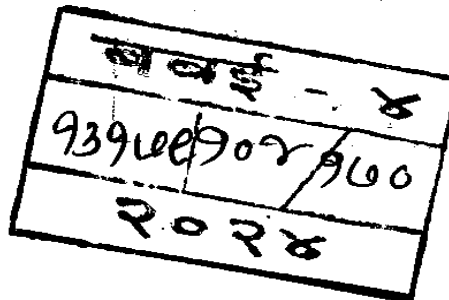 बबई - ४
१३१७९/१०२/१७०
२०२४